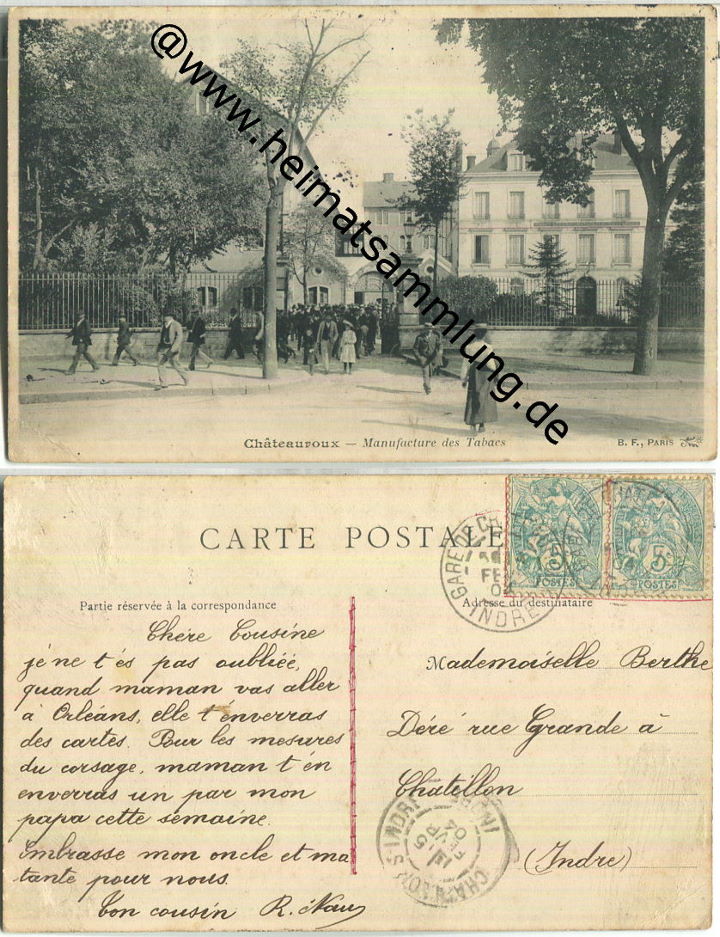 @www.heimatsammlung.de
Châteauroux — Manufacture des Tabacs
B. F., PARIS
CARTE POSTALE
Partie réservée à la correspondance
Adresse du destinataire
Chére Cousine
je ne t'és pas oubliéé,
quand maman vas aller
à Orléans, elle t'énverras
des cartes. Pour les mesures
du corsage, maman t'én
enverras un par mon
papa cette semaine.
Embrasse mon oncle et ma
tante pour nous.
Ton cousin R.
Mademoiselle Berthe
Déré rue Grande à
Chatillon
(Indre)
GARE DE
FE
INDRE
5
POSTES
5
POSTES
CHATILLON S INDRE
5
FEVR
04